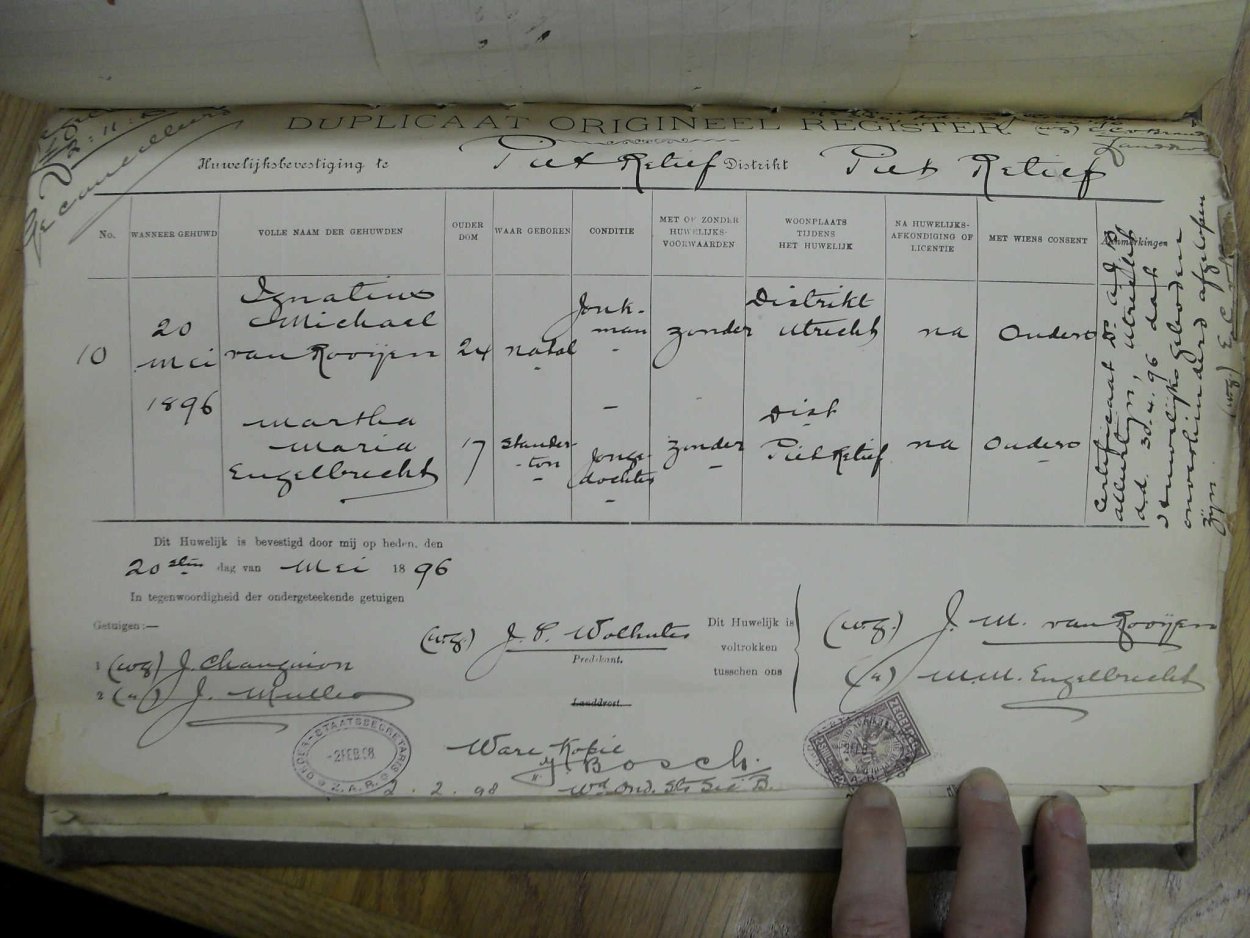 DUPLICAAT ORIGINEEL REGISTER.
Huwelijksbevestiging te Piet Relief Distrikt Piet Relief
No. WANNEER GEHUWD VOLLE NAAM DER GEHUWDEN OUDER DOM WAAR GEBOREN CONDITIE MET OF ZONDER HUWELIJKS-VOORWAARDEN WOONPLAATS TIJDENS HET HUWELIJK NA HUWELIJKS-AFKONDIGING OF LICENTIE MET WIENS CONSENT Aanmerkingen
10
20
mei
1896
Ignatius
Michael
van Rooijen
24
natal
Jonk-
man
zonder
Distrikt
Utrecht
na
Ouders
Martha
Maria
Engelbrecht
17
Stander-
-ton
Jonge
dochter
zonder
Dist
Piet Relief
na
Ouders
Certificaat
Utrecht
dd. 30.4.96 dat
huwelijksgeboden
onverhinderd afgelopen
zijn.
Dit Huwelijk is bevestigd door mij op heden, den
20sten dag van Mei 1896
In tegenwoordigheid der ondergeteekende getuigen
Getuigen:—
1 (wg) J. Changuion
2 (") J. Muller
(w.g.) J. P. Wolhuter
Predikant.
Landdrost.
Dit Huwelijk is
voltrokken
tusschen ons
(w.g.) J. M. van Rooijen
(") M.M. Engelbrecht
ONDER-STAATSSECRETARIS
-2 FEB. 98
Z.A.R.
Ware Kopie
Bosch.
2.2.98
Wd Ond. Sts Sec B.